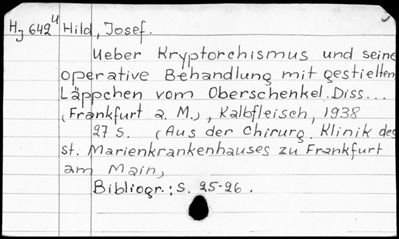 Hj 642u Hild, Josef.
Ueber Kryptorchismus und seine
operative Behandlung mit gestielten
Läppchen vom Oberschenkel. Diss...
(Frankfurt a. M.), Kalbfleisch, 1938
27 S. (Aus der Chirurg. Klinik des
St. Marienkrankenhauses zu Frankfurt
am Main,
Bibliogr.: S. 25-26.